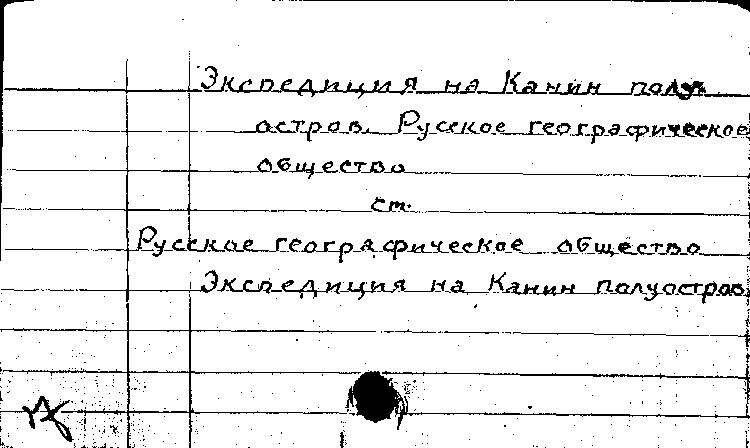 Экспедиция на Канин полу-
остров. Русское географическое
общество
см.
Русское географическое общество
Экспедиция на Канин полуостров